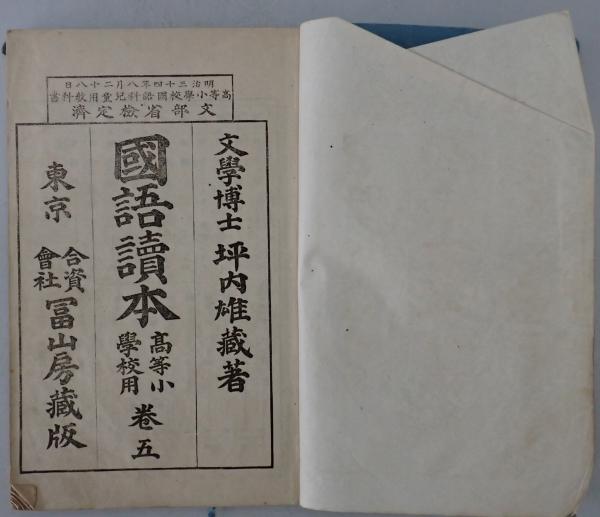 明治三十四年八月二十八日
高等小學校國語科兒童用教科書
文部省檢定濟
文學博士 坪內雄藏著
國語讀本
高等小
學校用
卷五
東京
合資
會社
冨山房藏版